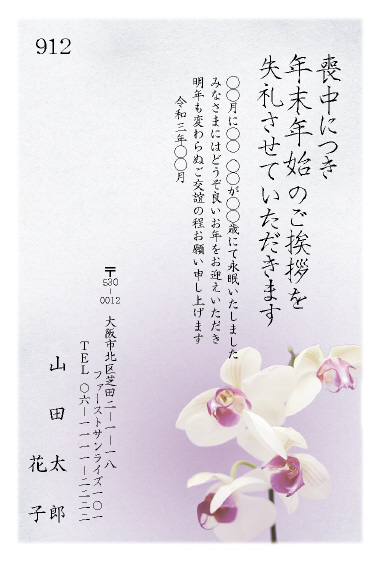 912
喪中につき
年末年始のご挨拶を
失礼させていただきます
〇〇月に〇〇 〇〇が〇〇歳にて永眠いたしました
みなさまにはどうぞ良いお年をお迎えいただき
明年も変わらぬご交誼の程お願い申し上げます
令和三年〇〇月
〒
530
-
0012
大阪市北区芝田二-一-一八
ファーストサンライズ一〇一
TEL 〇六-一一一一-二二二二
山田太郎
花子